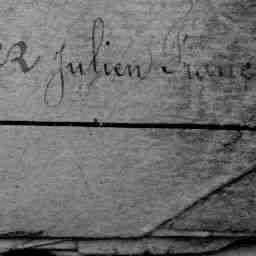 Julien Franç